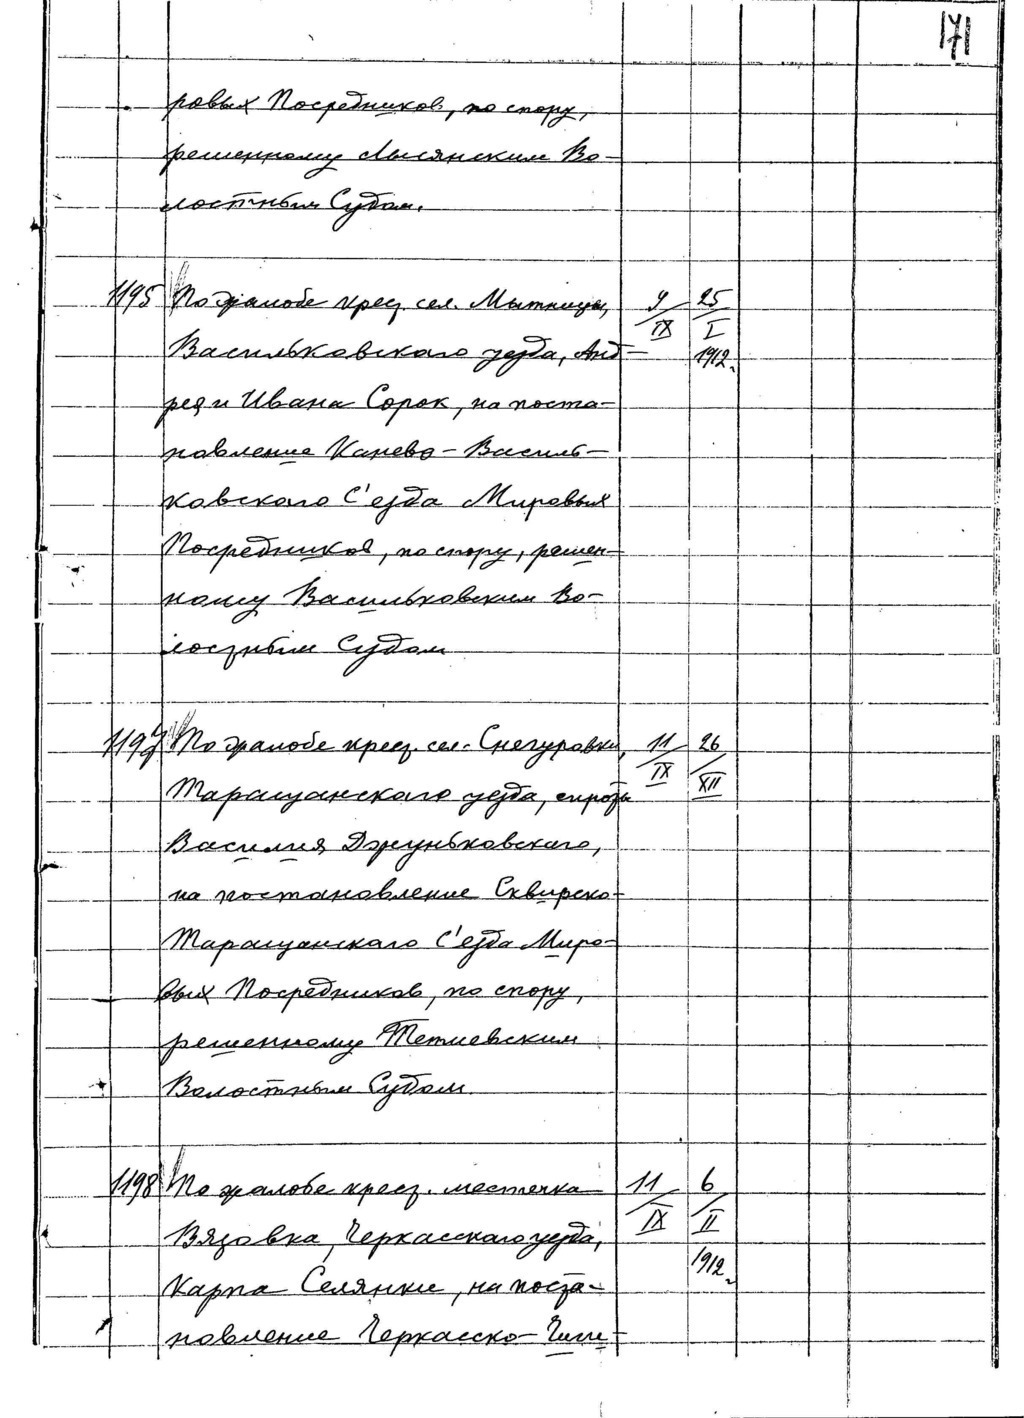 171
ровых Посредников, по спору,
решенному Лысянским Во-
лостным Судом.
1195 По жалобе крест. сел. Мытницы, 9/IX 25/I
Васильковского уезда, Анд- 1912.
рея и Ивана Сорок, на поста-
новление Канево-Василь-
ковского С'езда Мировых
Посредников, по спору, решен-
ному Васильковским Во-
лостным Судом
1197 По жалобе крест. сел. Снегуровки, 11/IX 26/XII
Таращанского уезда, сироты
Василия Джуньковского,
на постановление Сквирско-
Таращанского С'езда Миро-
вых Посредников, по спору,
решенному Тетиевским
Волостным Судом.
1198 По жалобе крест. местечка 11/IX 6/II
Вязовка, Черкасского уезда, 1912.
Карпа Селянки, на поста-
новление Черкасско-Чиги-